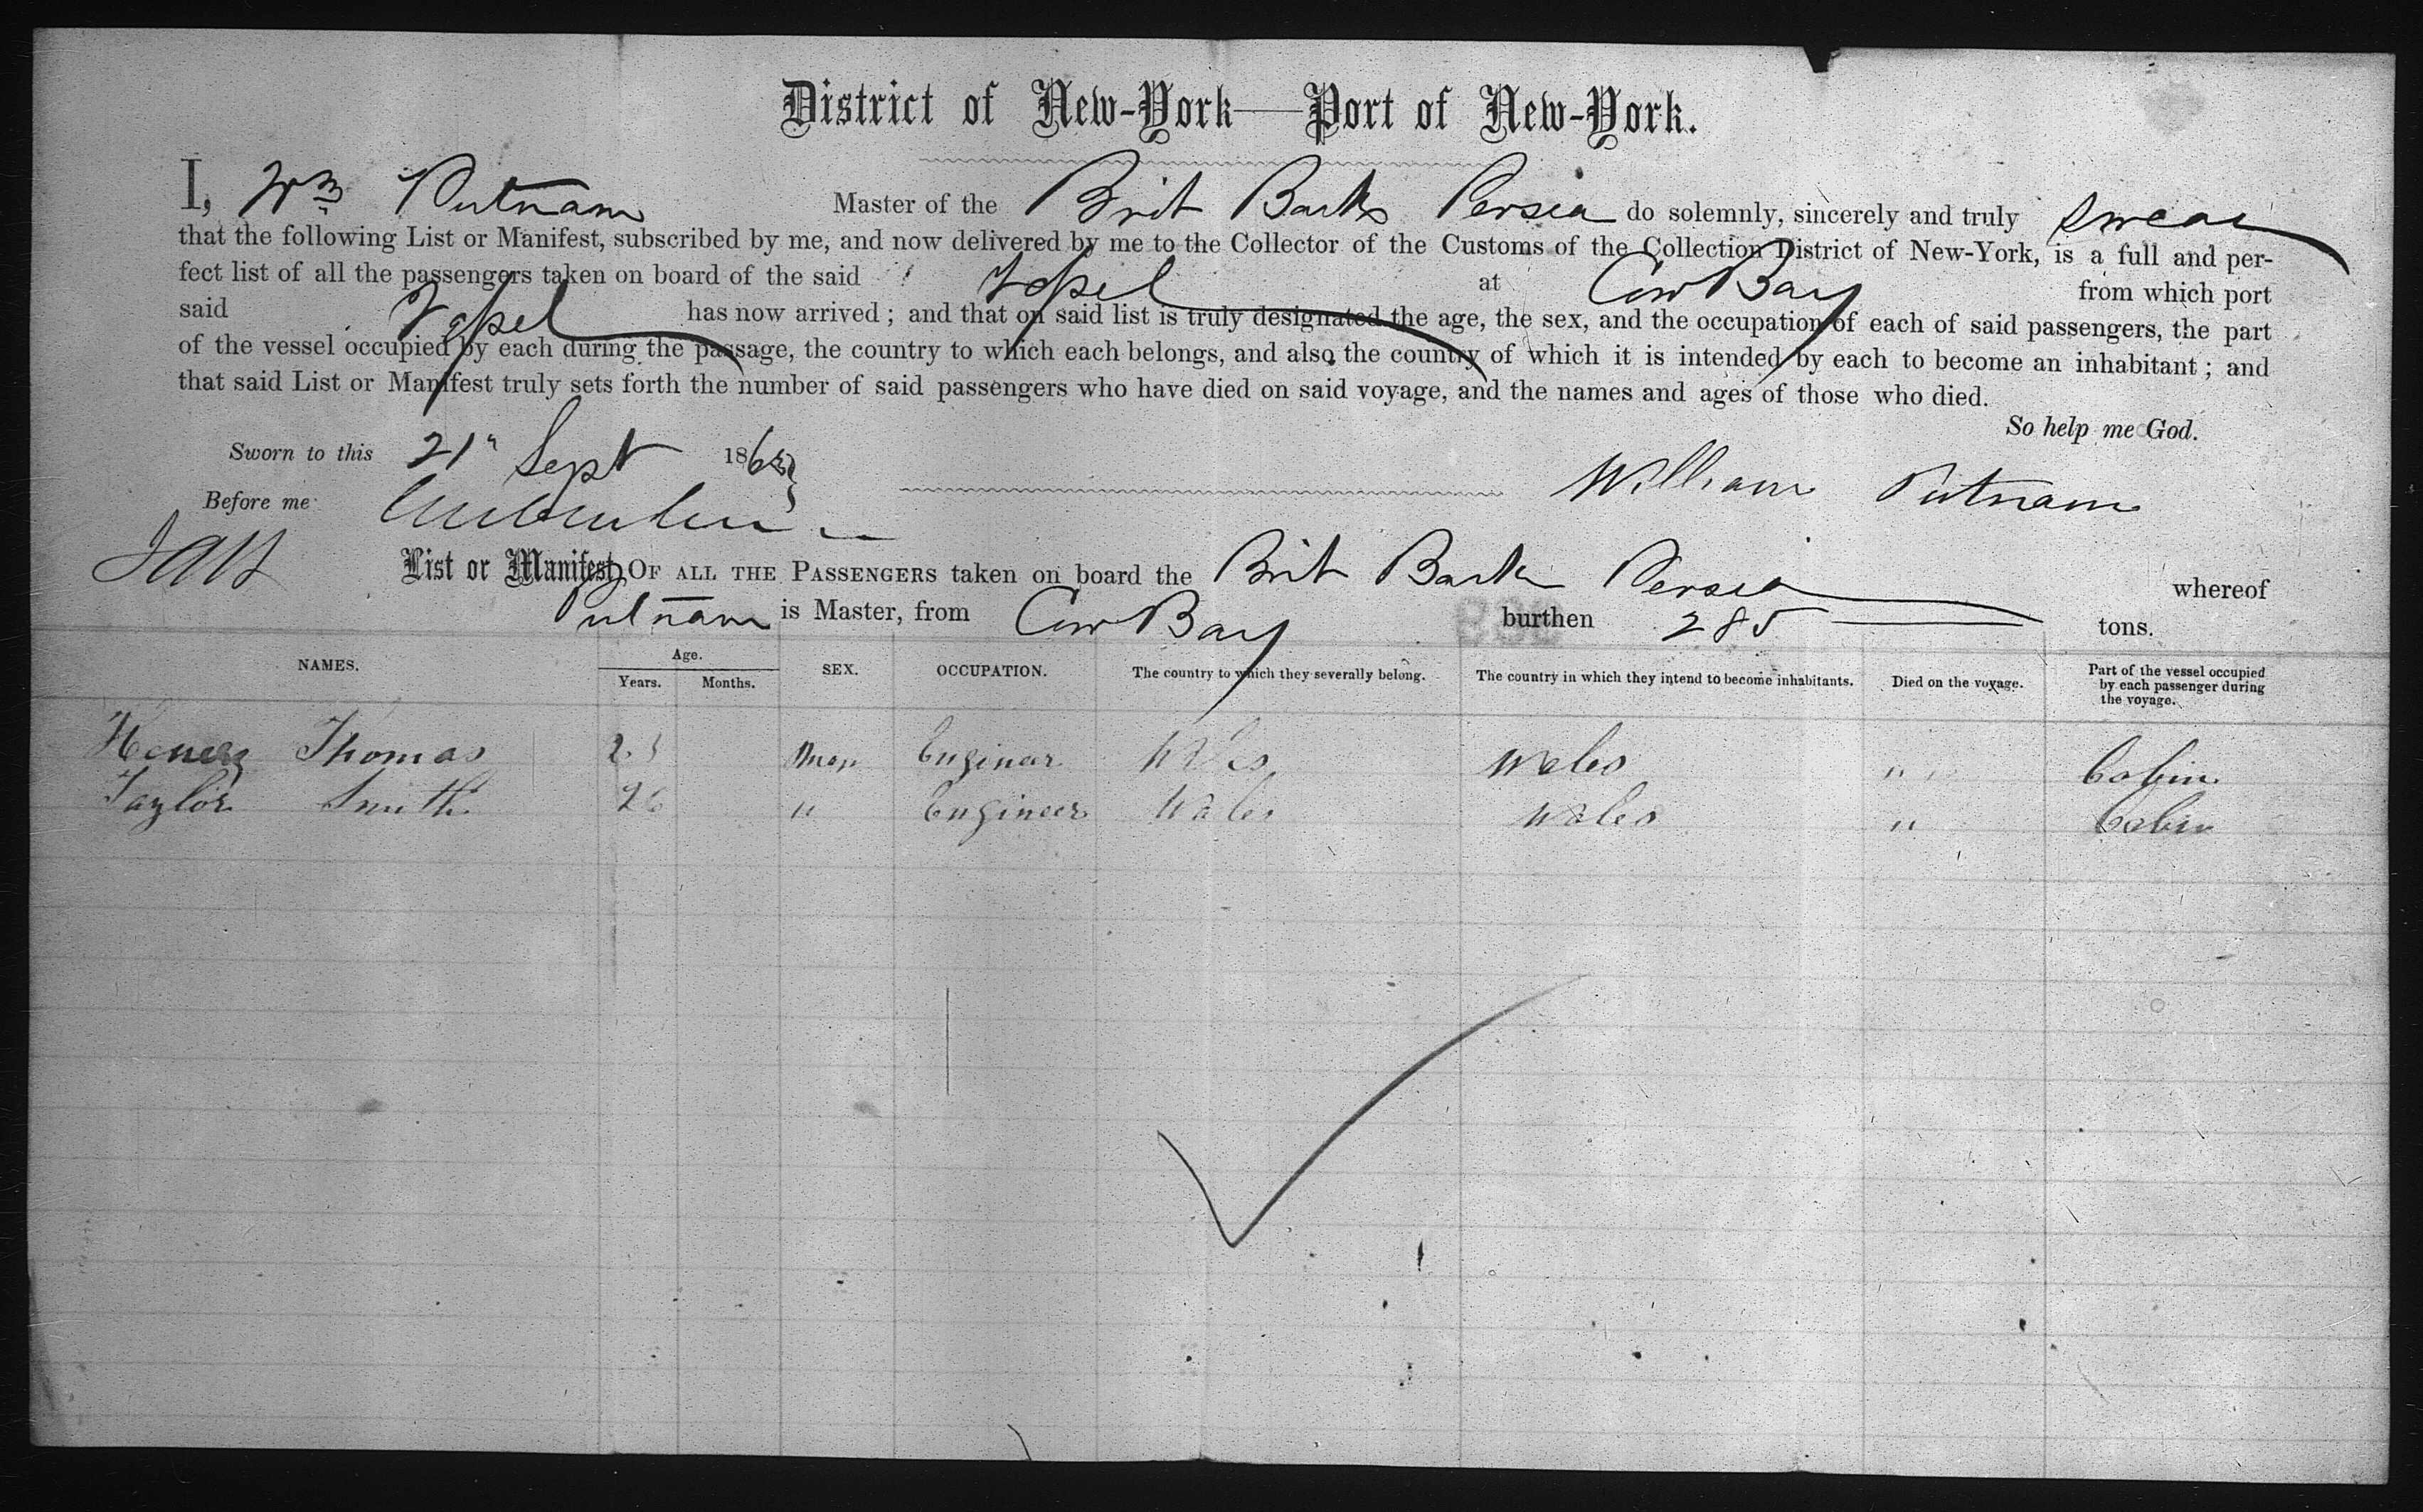 District of New-York—Port of New-York.
I, Wm Putnam Master of the Brit Bark Persia do solemnly, sincerely and truly swear
that the following List or Manifest, subscribed by me, and now delivered by me to the Collector of the Customs of the Collection District of New-York, is a full and per-
fect list of all the passengers taken on board of the said Vessel at Cow Bay from which port
said Vessel has now arrived; and that on said list is truly designated the age, the sex, and the occupation of each of said passengers, the part
of the vessel occupied by each during the passage, the country to which each belongs, and also the country of which it is intended by each to become an inhabitant; and
that said List or Manifest truly sets forth the number of said passengers who have died on said voyage, and the names and ages of those who died.
So help me God.
Sworn to this 21" Sept 186
Before me William Putnam
List or Manifest OF ALL THE PASSENGERS taken on board the Brit Bark Persia whereof
Putnam is Master, from Cow Bay burthen 285 tons.
NAMES. Age. Years. Months. SEX. OCCUPATION. The country to which they severally belong. The country in which they intend to become inhabitants. Died on the voyage. Part of the vessel occupied by each passenger during the voyage.
Henery Thomas Man Enginear Wales Wales " Cabin
Taylor Smith 26 " Engineer Wales Wales " Cabin